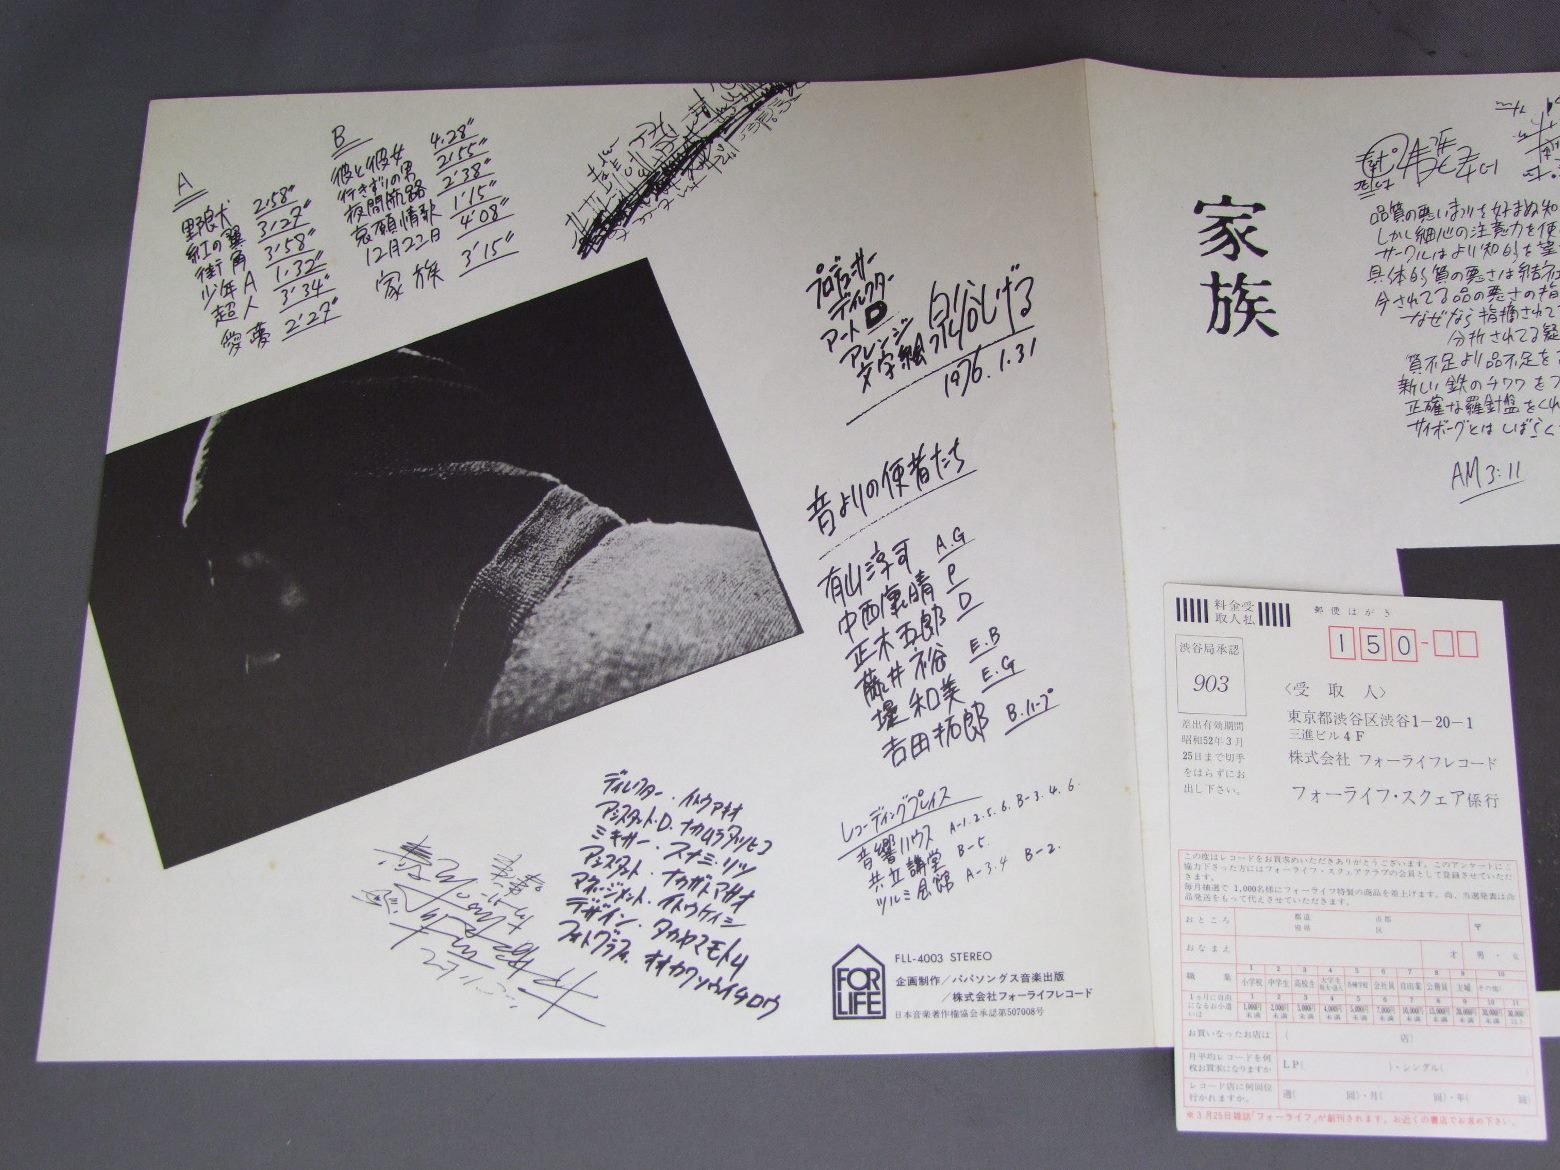 A
野良犬 2'58"
紅の翼 3'27"
街角 3'58"
少年A 1'32"
超人 3'34"
愛夢 2'27"
B
彼と彼女 4'28"
行きずりの男 2'55"
夜間航路 2'38"
哀願情歌 1'15"
12月22日 4'08"
家族 3'15"
プロデューサー
ディレクター
アートD
アレンジ
文字絵
泉谷しげる
1976.1.31
音よりの使者たち
有山淳司 A.G
中西康晴 P
正木五郎 D
藤井裕 E.B
堤和美 E.G
吉田拓郎 B.ハープ
レコーディングプレイス
音響ハウス A-1.2.5.6. B-3.4.6.
共立講堂 B-5.
ツルミ会館 A-3.4 B-2.
ディレクター・イトウアキオ
アシスタント・D・ナカムラアツヒコ
ミキサー・スナミ・リツ
アシスタント・ナカガトマサオ
マネージメント・イトウケイシ
デザイン・タカヤマモトム
フォトグラファ・オオカワソウイチロウ
FOR
LIFE
FLL-4003 STEREO
企画制作/パパソングス音楽出版
/株式会社フォーライフレコード
日本音楽著作権協会承認第507008号
家族
品質の悪いまつりを好まぬ知
しかし細心の注意力を使
サークルはより知的を望
具体的質の悪さは結
今されてる品の悪さの指
なぜなら指摘されて
分析されてる疑
質不足より品不足を
新しい鉄のチワワを
正確な羅針盤をくれ
サイボーグとはしばらく
AM3:11
料金受
取人払
郵便はがき
150-
渋谷局承認
903
差出有効期間
昭和52年3月
25日まで切手
をはらずにお
出し下さい。
〈受取人〉
東京都渋谷区渋谷1-20-1
三進ビル4F
株式会社 フォーライフレコード
フォーライフ・スクェア係行
この度はレコードをお買求めいただきありがとうございます。このアンケートにご
協力下さった方にはフォーライフ・スクェアクラブの会員として登録させていただき
ます。
毎月抽選で1,000名様にフォーライフ特製の商品を差上げます。尚、当選発表は商
品発送をもって代えさせていただきます。
おところ 都道府県 市郡区 〒
おなまえ 才 男・女
職業 1 小学校 2 中学生 3 高校生 4 5 各種学校 6 会社員 7 自由業 8 公務員 9 主婦 10 その他
1ヵ月に自由になるお小遣いは 1 1,000円未満 2 2,000円未満 3 3,000円未満 4 4,000円未満 5 5,000円未満 6 7,000円未満 7 10,000円未満 8 15,000円未満 9 20,000円未満 10 30,000円未満 11 30,000円以上
お買いなったお店は ( 店)
月平均レコードを何枚お買求になりますか LP( )・シングル(
レコード店に何回位行かれますか。 週( 回)・月( 回)・年( 回
※3月25日雑誌「フォーライフ」が創刊されます。お近くの書店でお求め下さい。